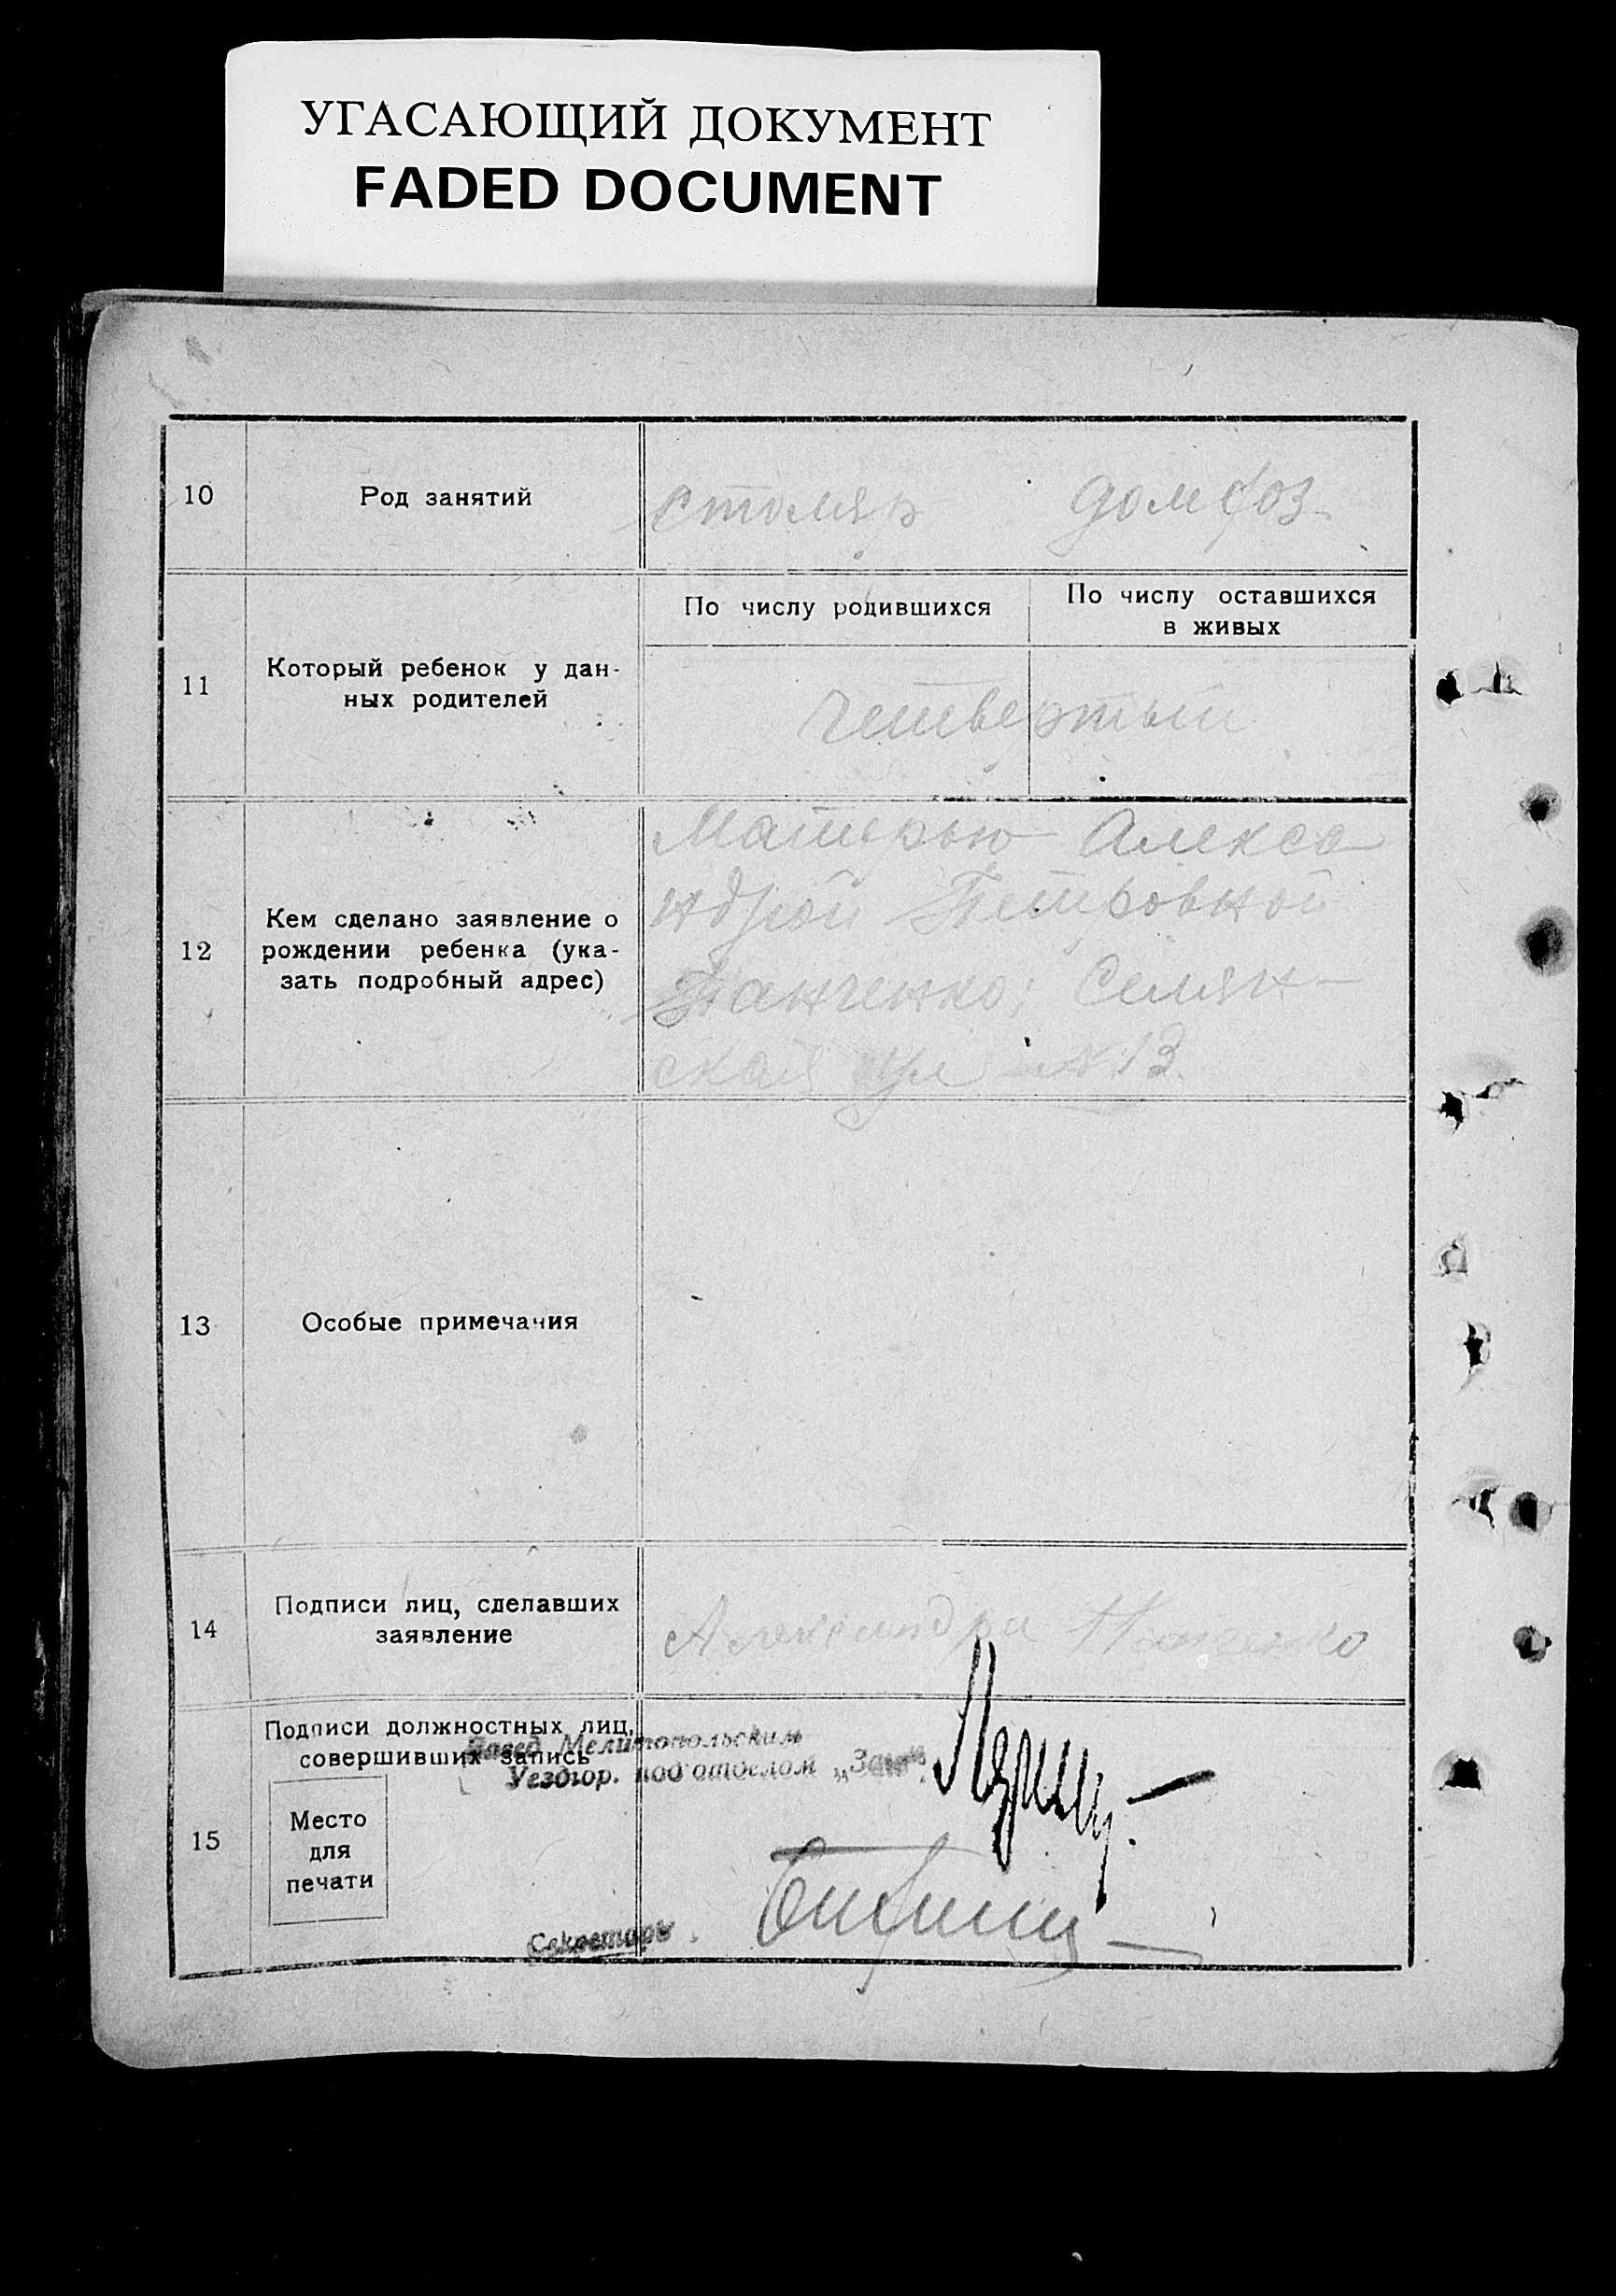 УГАСАЮЩИЙ ДОКУМЕНТ
FADED DOCUMENT
10
Род занятий
столяр домхоз
11
Который ребенок у дан-
ных родителей
По числу родившихся
По числу оставшихся
в живых
четвертый
12
Кем сделано заявление о
рождении ребенка (ука-
зать подробный адрес)
Матерью Алекса
ндрой Петровной
Панченко; Селян-
ская ул № 13
13
Особые примечания
14
Подписи лиц, сделавших
заявление
Александра Панченко
15
Подписи должностных лиц,
совершивших запись
Завед. Мелитопольским
Уездгор. подотделом „Загс“
Место
для
печати
Секретарь